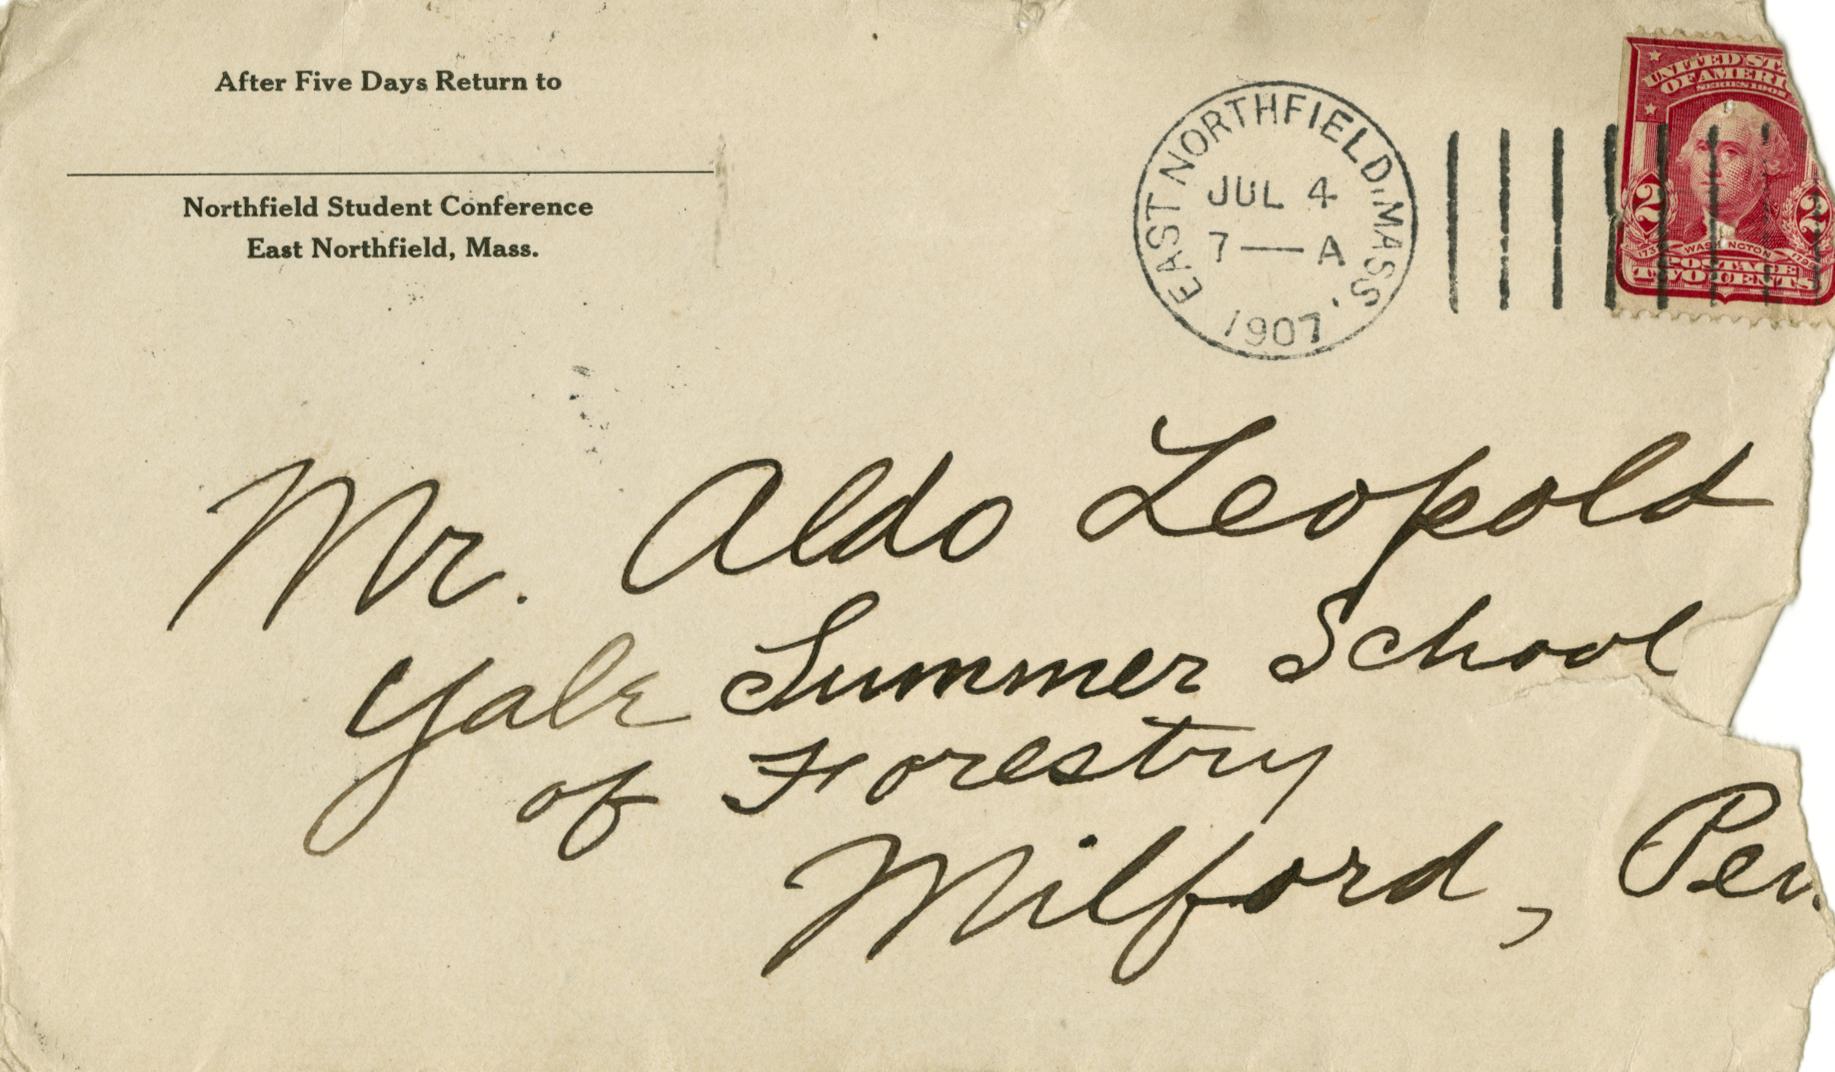 After Five Days Return to
Northfield Student Conference
East Northfield, Mass.
EAST NORTHFIELD, MASS.
JUL 4
7 — A
1907
UNITED ST
OF AMERI
SERIES 1902
2 2
WASHINGTON
POSTAGE
TWO CENTS
Mr. Aldo Leopold
Yale Summer School
of Forestry
Milford, Pen